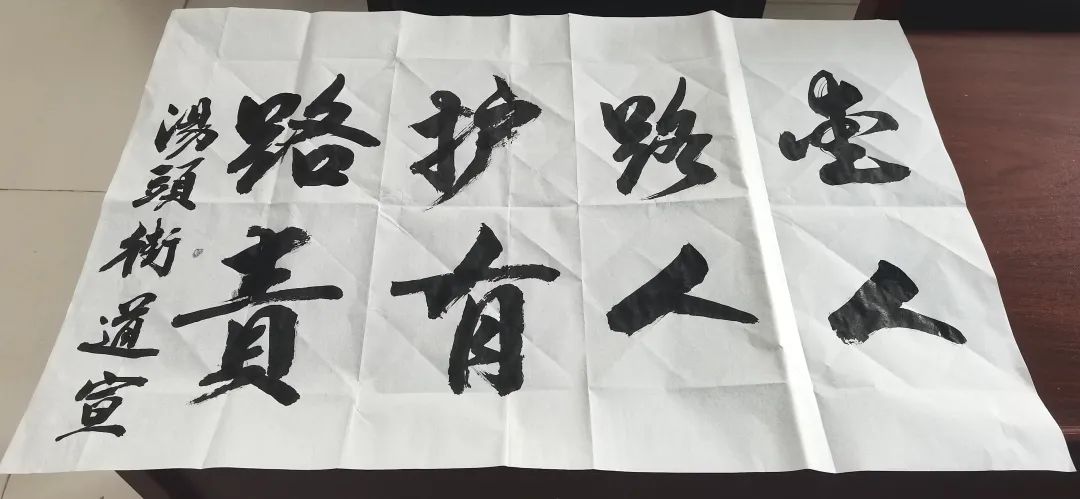 爱路护路
人人有責
湯頭街道宣